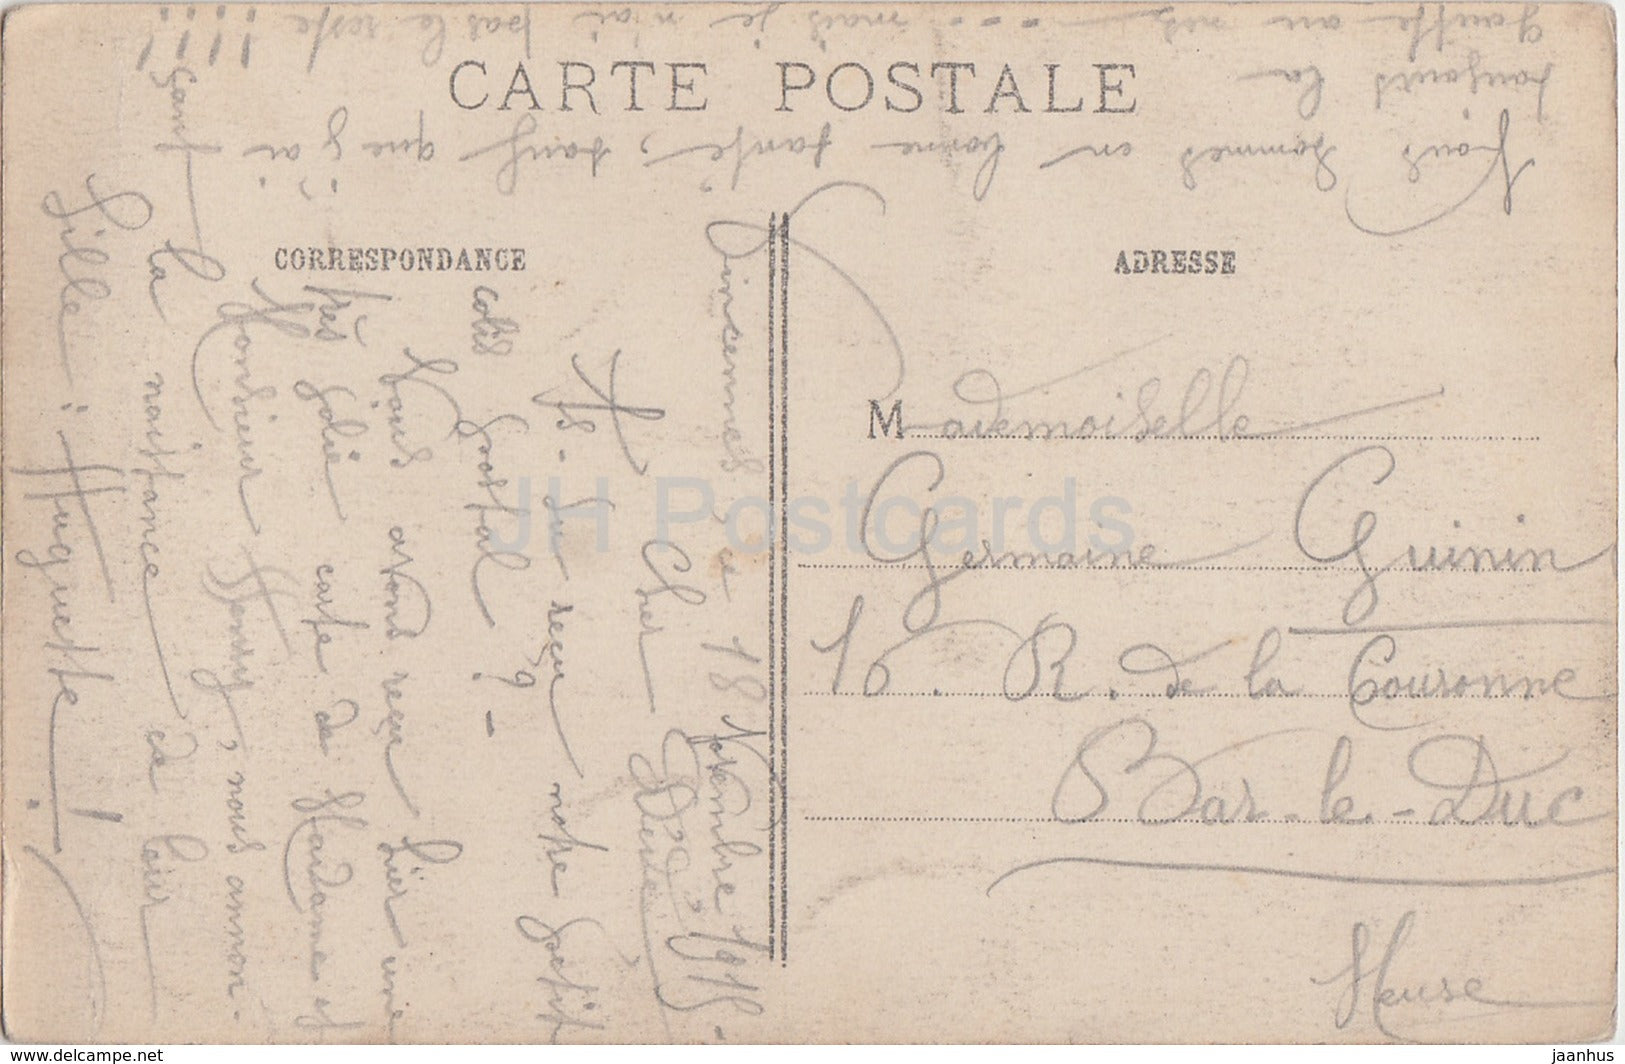 CARTE POSTALE
CORRESPONDANCE
ADRESSE
Mademoiselle
Germaine Guinin
16. R. de la Couronne
Bar-le-Duc
Meuse
Vincennes, ce 18 Novembre 1915-
Cher
As-tu reçu notre petit
colis postal ? -
Nous avons reçu hier une
très jolie carte de Madame et
Monsieur Henry, nous annon-
çant la
la naissance de leur
fille : Huguette !
Nous sommes en bonne santé, sauf que j'ai
toujours la
goutte au nez --- mais je n'ai pas le reste !!!!
JH Postcards
www.delcampe.net
jaanhus